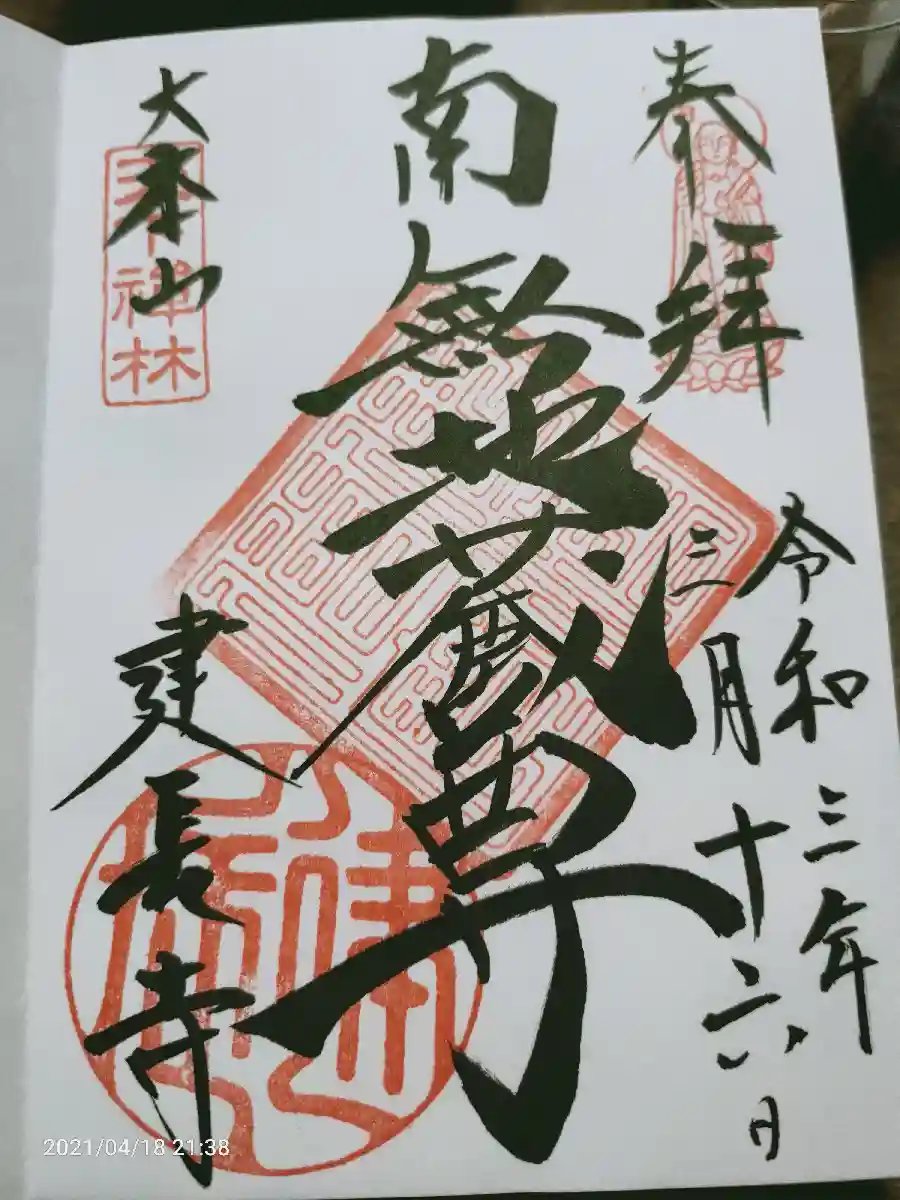 奉拝
令和三年
三月十六日
南無地蔵尊
大本山
建長寺
禅林
2021/04/18 21:38